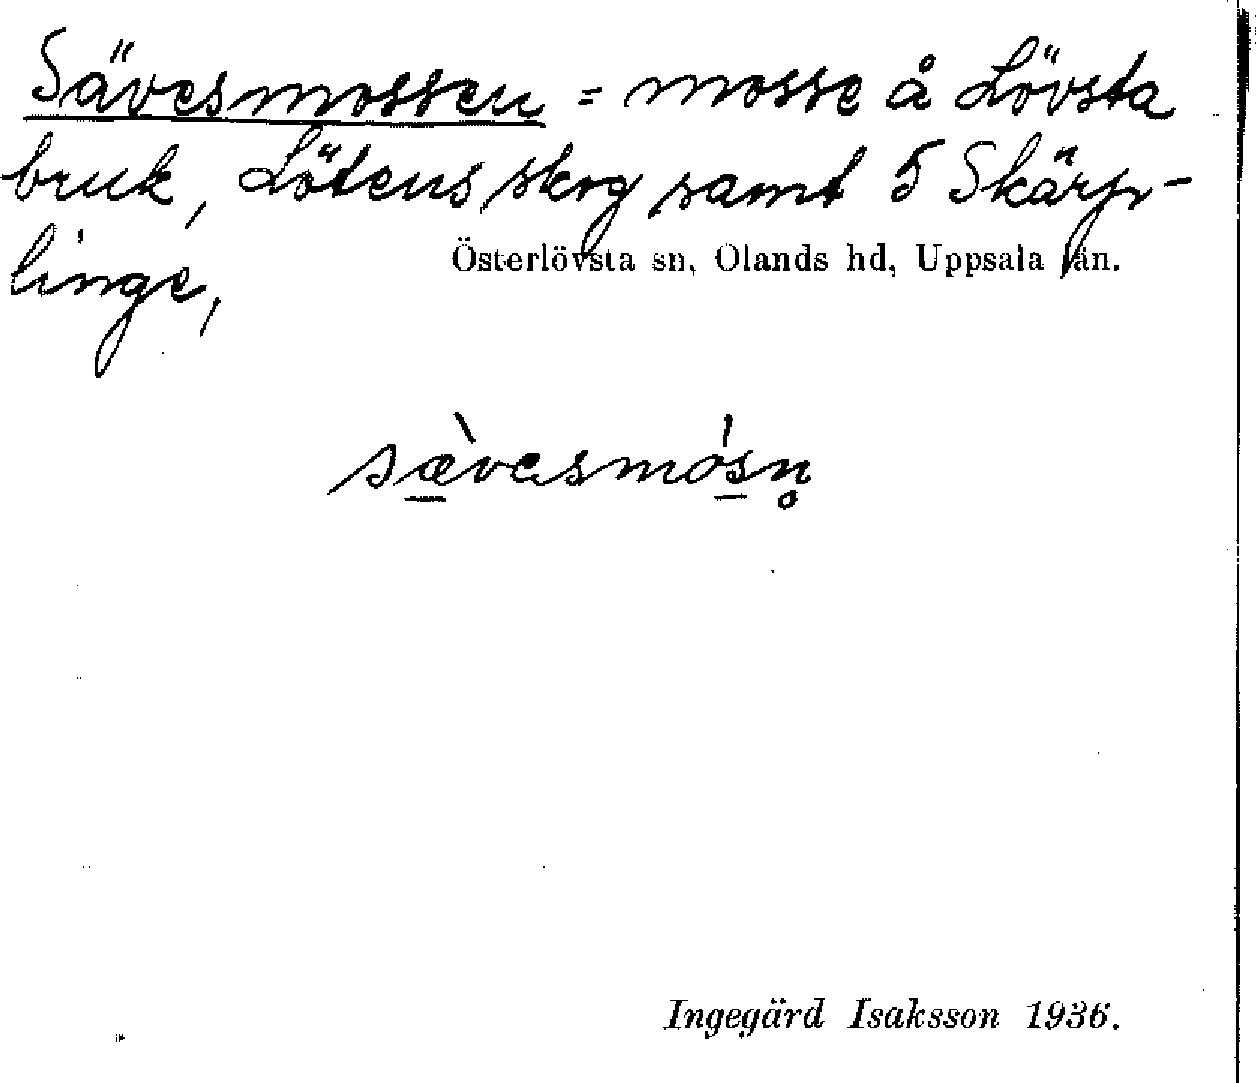 Sävesmossen = mosse å Lövsta
bruk, Lötens skog samt 5 Skärp-
linge,
Österlövsta sn, Olands hd, Uppsala län.
sæ̀vesmósn̥
Ingegärd Isaksson 1936.